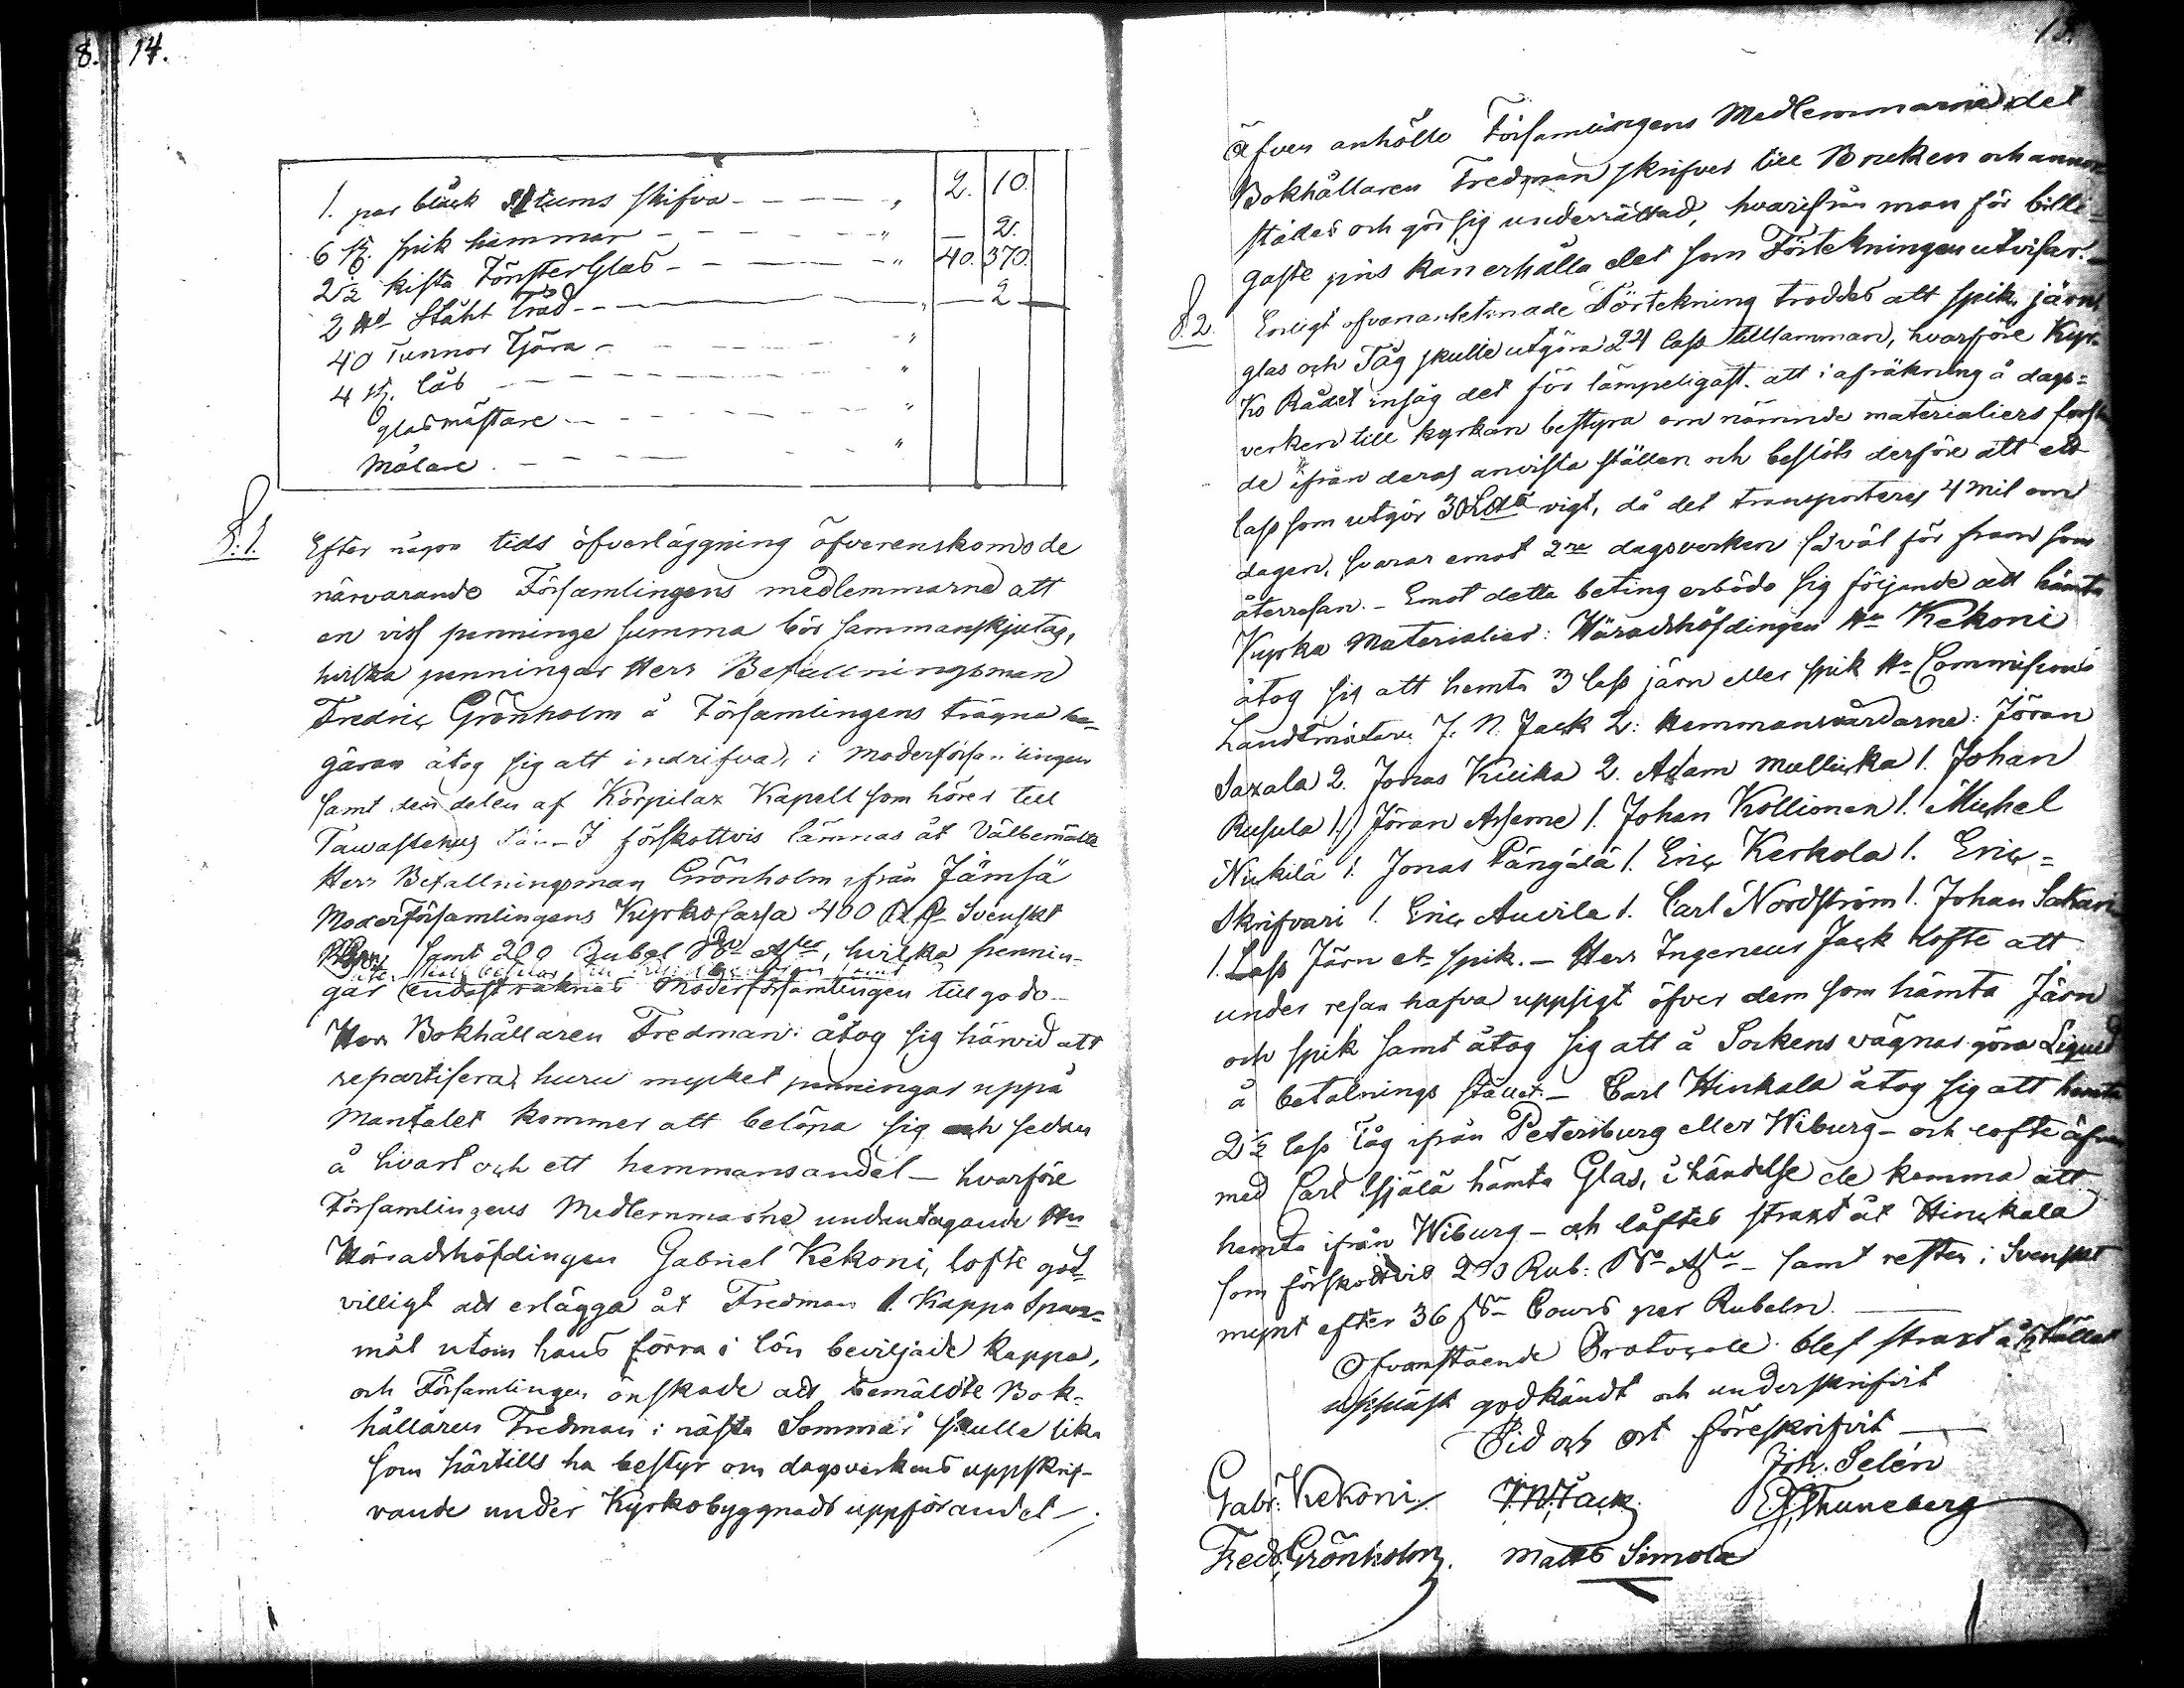 8. 14.
1. par bläck tums skifva - - - - „ 2. 10.
6 st. spik hammar - - - - - „ — 2.
2½ kista FönsterGlas - - - - „ 40. 370.
2 ℔ Ståhl Tråd - - - — 2 —
40 Tunnor Tjära - - - - - „
4 st. lås - - - - - - „
Glasmästare - - - - - - „
Målare - - - - - „
§. 1.
Efter någon tids öfverläggning öfverenskom de
närvarande Församlingens medlemmarne att
en viss penninge summa bör sammanskjutas,
hvilka penningar Herr Befallningsman
Fredric Grönholm å Församlingens trägna be=
gäran åtog sig att indrifva, i Moderförsamlingen
samt den delen af Korpilax Kapell som hörer till
Tawastehus Län - I förskottvis lämnas åt Välbemälte
Herr Befallningsman Grönholm ifrån Jämsä
ModerFörsamlingens KyrkoCassa 400 Svenskt
samt 200 Rubel hvilka pennin-
gar endast räknas Moderförsamlingen till godo -
Herr Bokhållaren Fredman åtog sig härvid att
repartisera, huru mycket penningar uppå
Mantalet kommer att belöpa sig och sedan
å hvart och ett hemmansandel - hvarföre
Församlingens Medlemmarne undantagande Hrr
Häradshöfdingen Gabriel Kekoni, lofte god=
villigt att erlägga åt Fredman 1. Kappa Span=
mål utom hans förra i lön beviljade Kappa,
och Församlingen önskade att bemäldte Bok=
hållaren Fredman i nästa Sommar skulle lika
som härtills ha bestyr om dagsverkens uppskrif-
vande under Kyrkobyggnads uppförandet -
15.
Äfven anhölls Församlingens Medlemmarne det
Bokhållaren Fredman skrifver till Bruken och annor
städes och gör sig underrättad, hvarifrån man för billi=
gaste pris kan erhålla det som Förtekningen utvisar. -
§. 2.
Enligt ofvanantecknade Förtekning troddes att spik, järn,
glas och Tåg skulle utgöra 24 lass tillsamman, hvarföre Kyr=
ko Rådet insåg det för lämpeligast att i afräkning å dags=
verken till kyrkan bestyra om nämnde materialiers forslan
de ifrån deras anvista ställen och beslöts derföre att ett
lass som utgör 30 L℔ vigt, då det transporteras 4 mil om
dagen, svarar emot 2ne dagsverken så väl för fram som
återresan. - Emot detta beting erböds sig följande att hämta
Kyrka Materialier: Häradshöfdingen Hr Kekoni
åtog sig att hemta 3 lass järn eller spik Hr Commissions
Landtmätare J. N. Jack 2: Hemmansvärdarne: Jöran
Saxala 2. Jonas Kuika 2. Adam Mullicka 1. Johan
Rusula 1. Jöran Asseme 1. Johan Kollionen 1. Michel
Nickilä 1. Jonas Pängälä 1. Eric Kerkola 1. Eric =
Skrifvari 1. Eric Auvila 1. Carl Nordström 1. Johan Sakari
1. Lass Järn et spik. - Herr Ingenieur Jack lofte att
under resan hafva uppsigt öfver dem som hämta Järn
och spik samt åtog sig att å Sockens vägnar göra Liquid
å betalnings stället - Carl Hinkala åtog sig att hemta
2½ lass Tåg ifrån Petersburg eller Wiburg - och lofte äfven
med Carl hämta Glas, i händelse de komma att
hemta ifrån Wiburg - och låftes straxt åt Hinckala
som förskottvis 200 Rub: - samt resten i Svenskt
mynt efter 36 Cours per Rubeln. -
Ofvanstående Protocoll blef straxt å stället
uppläst godkändt och underskrifvit
Tid och ort föreskrifvit -
Joh. Selén
Gabr. Kekoni. J. N. Jack. E. J. Thuneberg
Fredr. Grönholm. Matts Simola